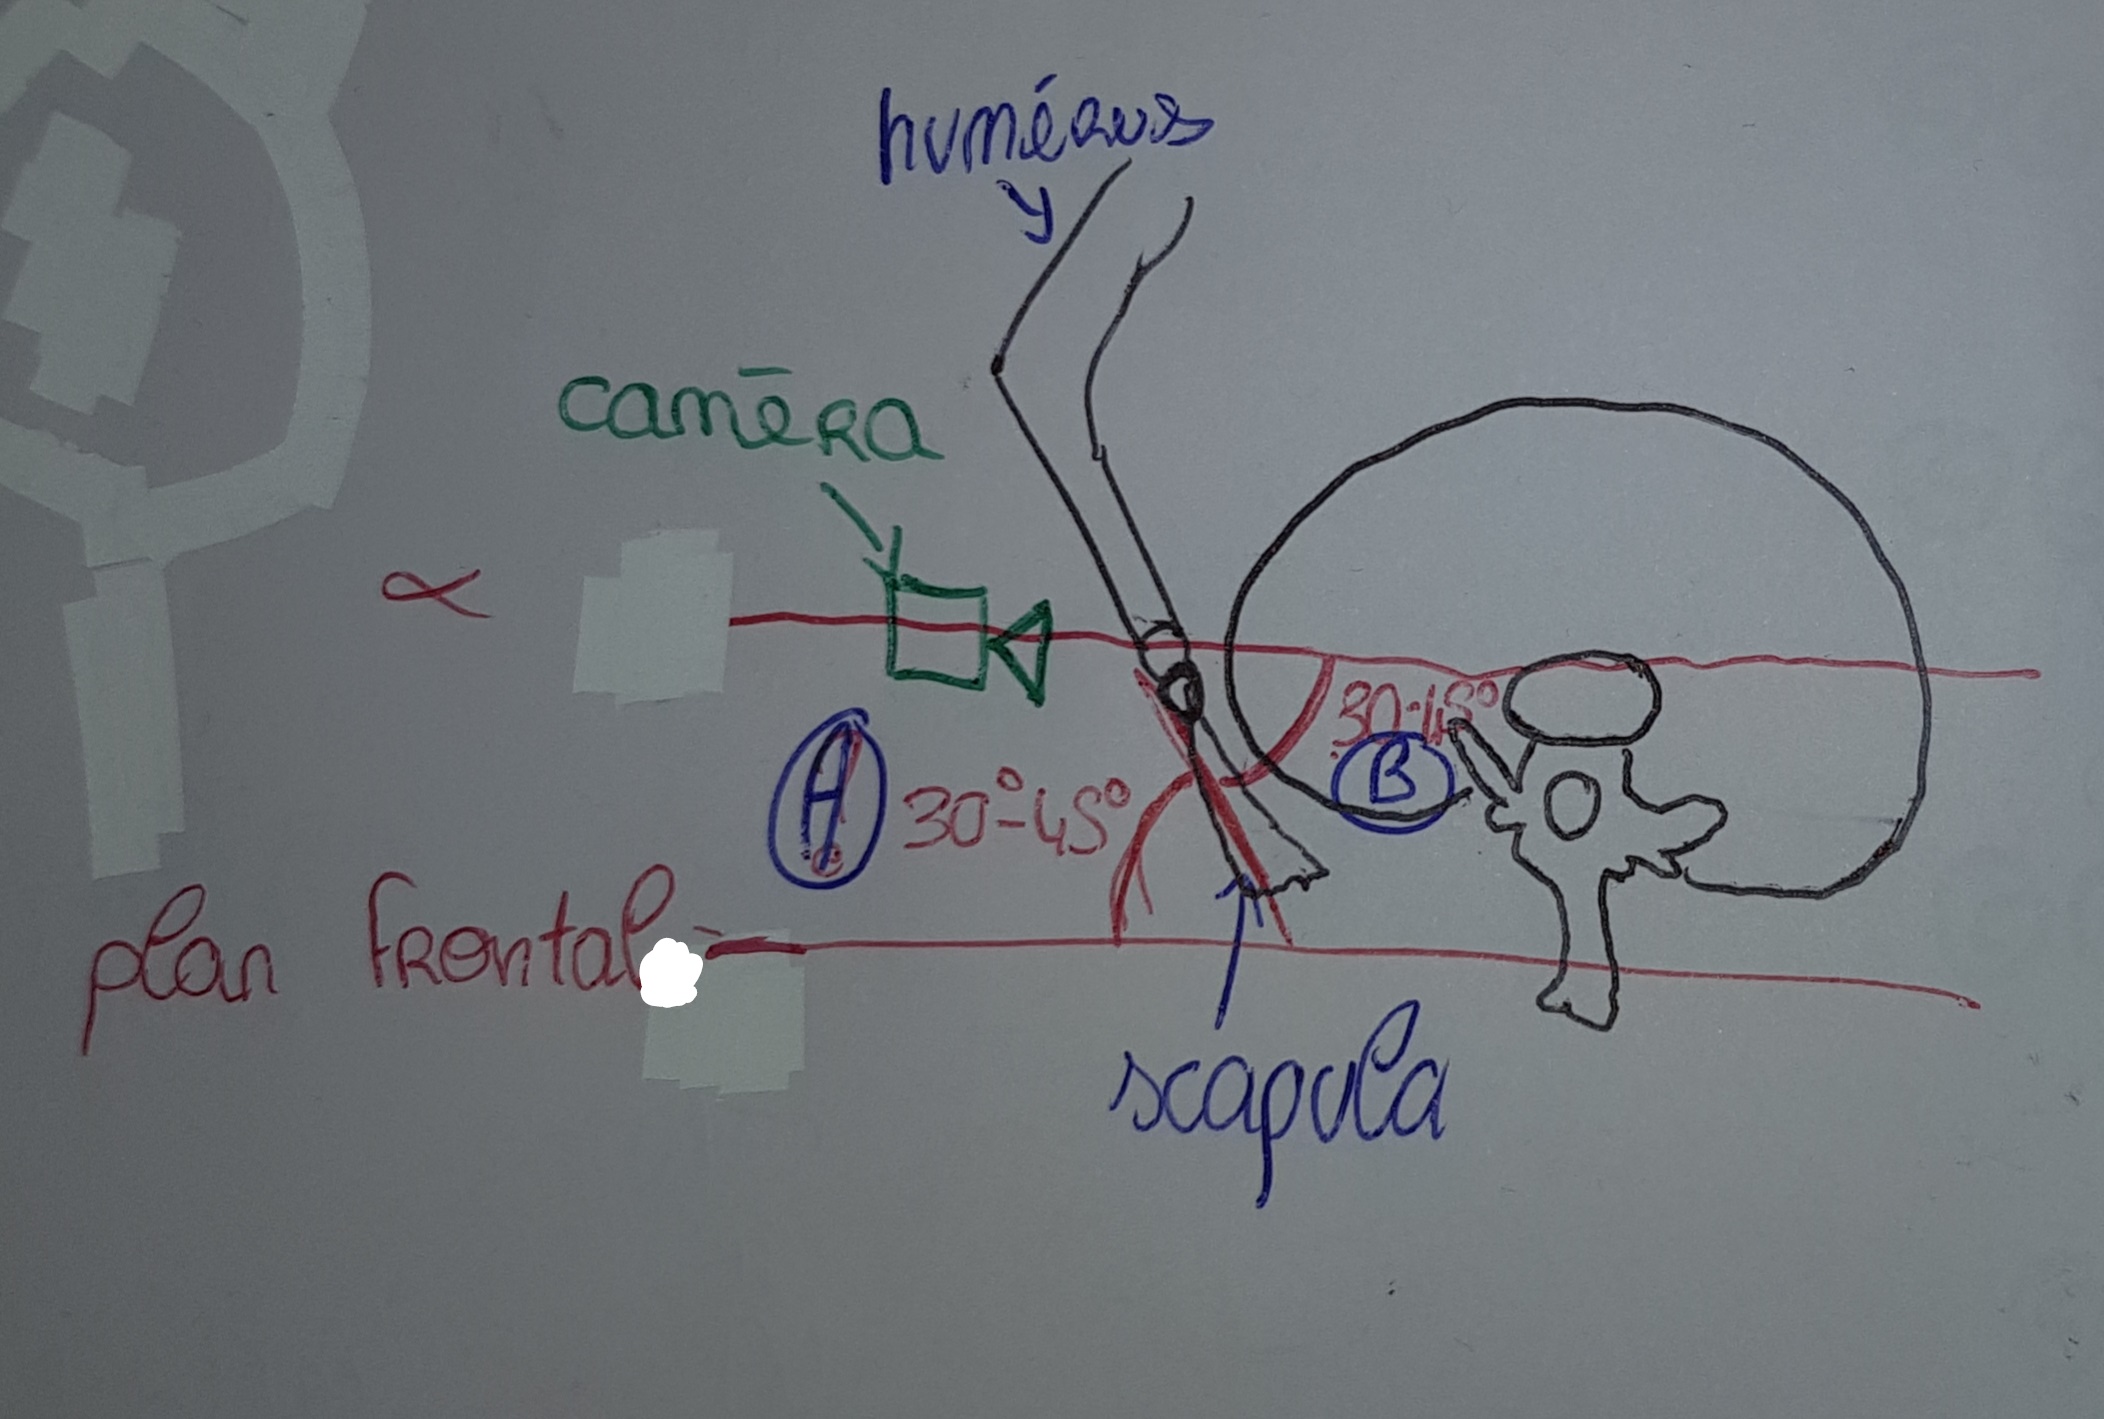 humérus
y
caméra
α
30-45°
A 30°-45°
B
plan frontal
scapula